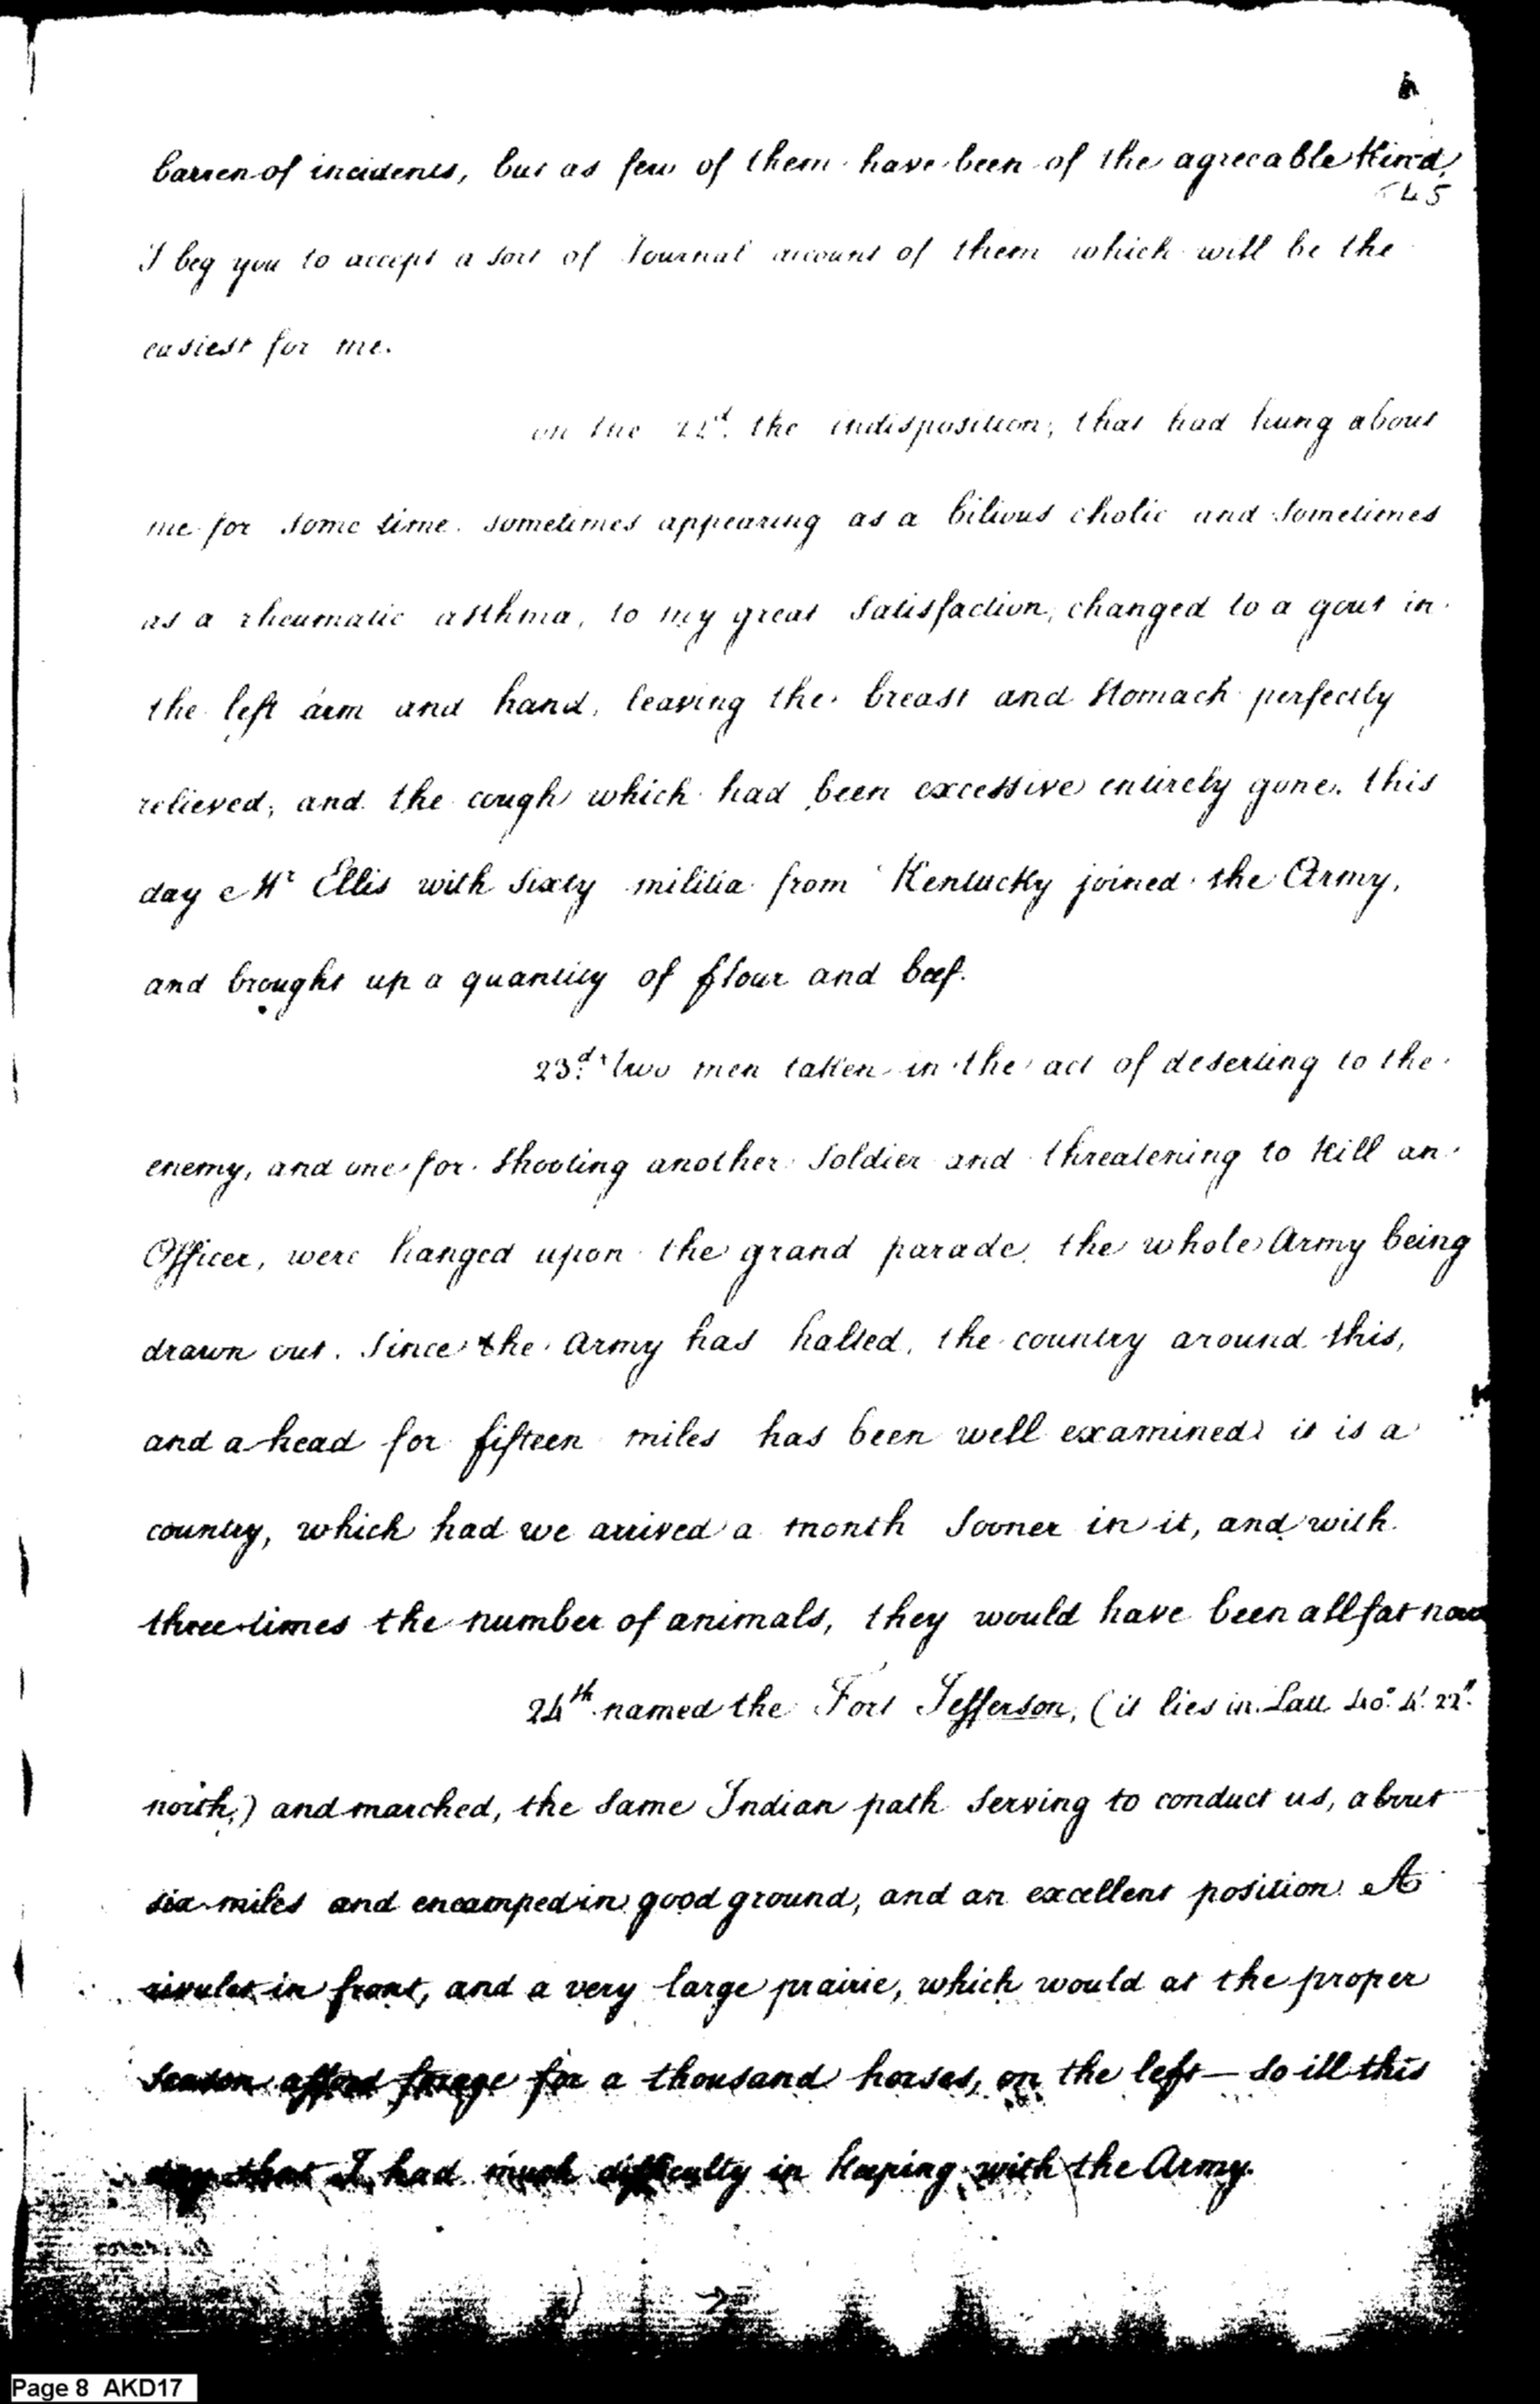 barren of incidents, but as few of them have been of the agreeable kind,
45
I beg you to accept a sort of Journal account of them which will be the
easiest for me.
on the 22d. the indisposition, that had hung about
me for some time. sometimes appearing as a bilious cholic and sometimes
as a rheumatic asthma, to my great satisfaction, changed to a gout in
the left arm and hand, leaving the breast and stomach perfectly
relieved, and the cough which had been excessive entirely gone. this
day Mr Ellis with sixty militia from Kentucky joined the Army,
and brought up a quantity of flour and beef.
23d. two men taken in the act of deserting to the
enemy, and one for shooting another soldier and threatening to kill an
Officer, were hanged upon the grand parade, the whole Army being
drawn out. Since the Army has halted, the country around this,
and a head for fifteen miles has been well examined it is a
country, which had we arrived a month sooner in it, and with
three times the number of animals, they would have been all fat now
24th named the Fort Jefferson, (it lies in Latt 40° 4' 22"
north,) and marched, the same Indian path serving to conduct us, about
six miles and encamped in good ground, and an excellent position. A
rivulet in front, and a very large prairie, which would at the proper
season afford forage for a thousand horses, on the left — so ill this
day that I had much difficulty in keeping with the Army.
Page 8 AKD17